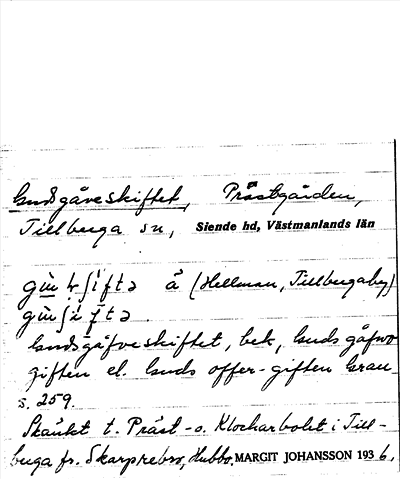 Gudsgåveskiftet, Prästgården,
Tillberga sn, Siende hd, Västmanlands län
å (Hellman, Tillbergaby)
Gudsgåfveskiftet, bek, Guds gåfwo
giften el. Guds offer-giften Grau
s. 259.
Skänkt t. Präst- o. Klockarbolet i Till-
berga fr. Skarprebso, Hubbo. MARGIT JOHANSSON 1936.